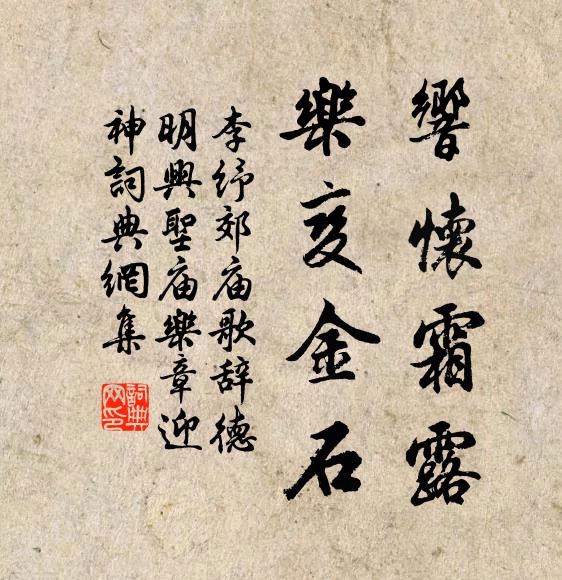 響懷霜露
樂变金石
李纾郊庙歌辞德
明興聖庙樂章迎
神詞典網集
詞典
网印